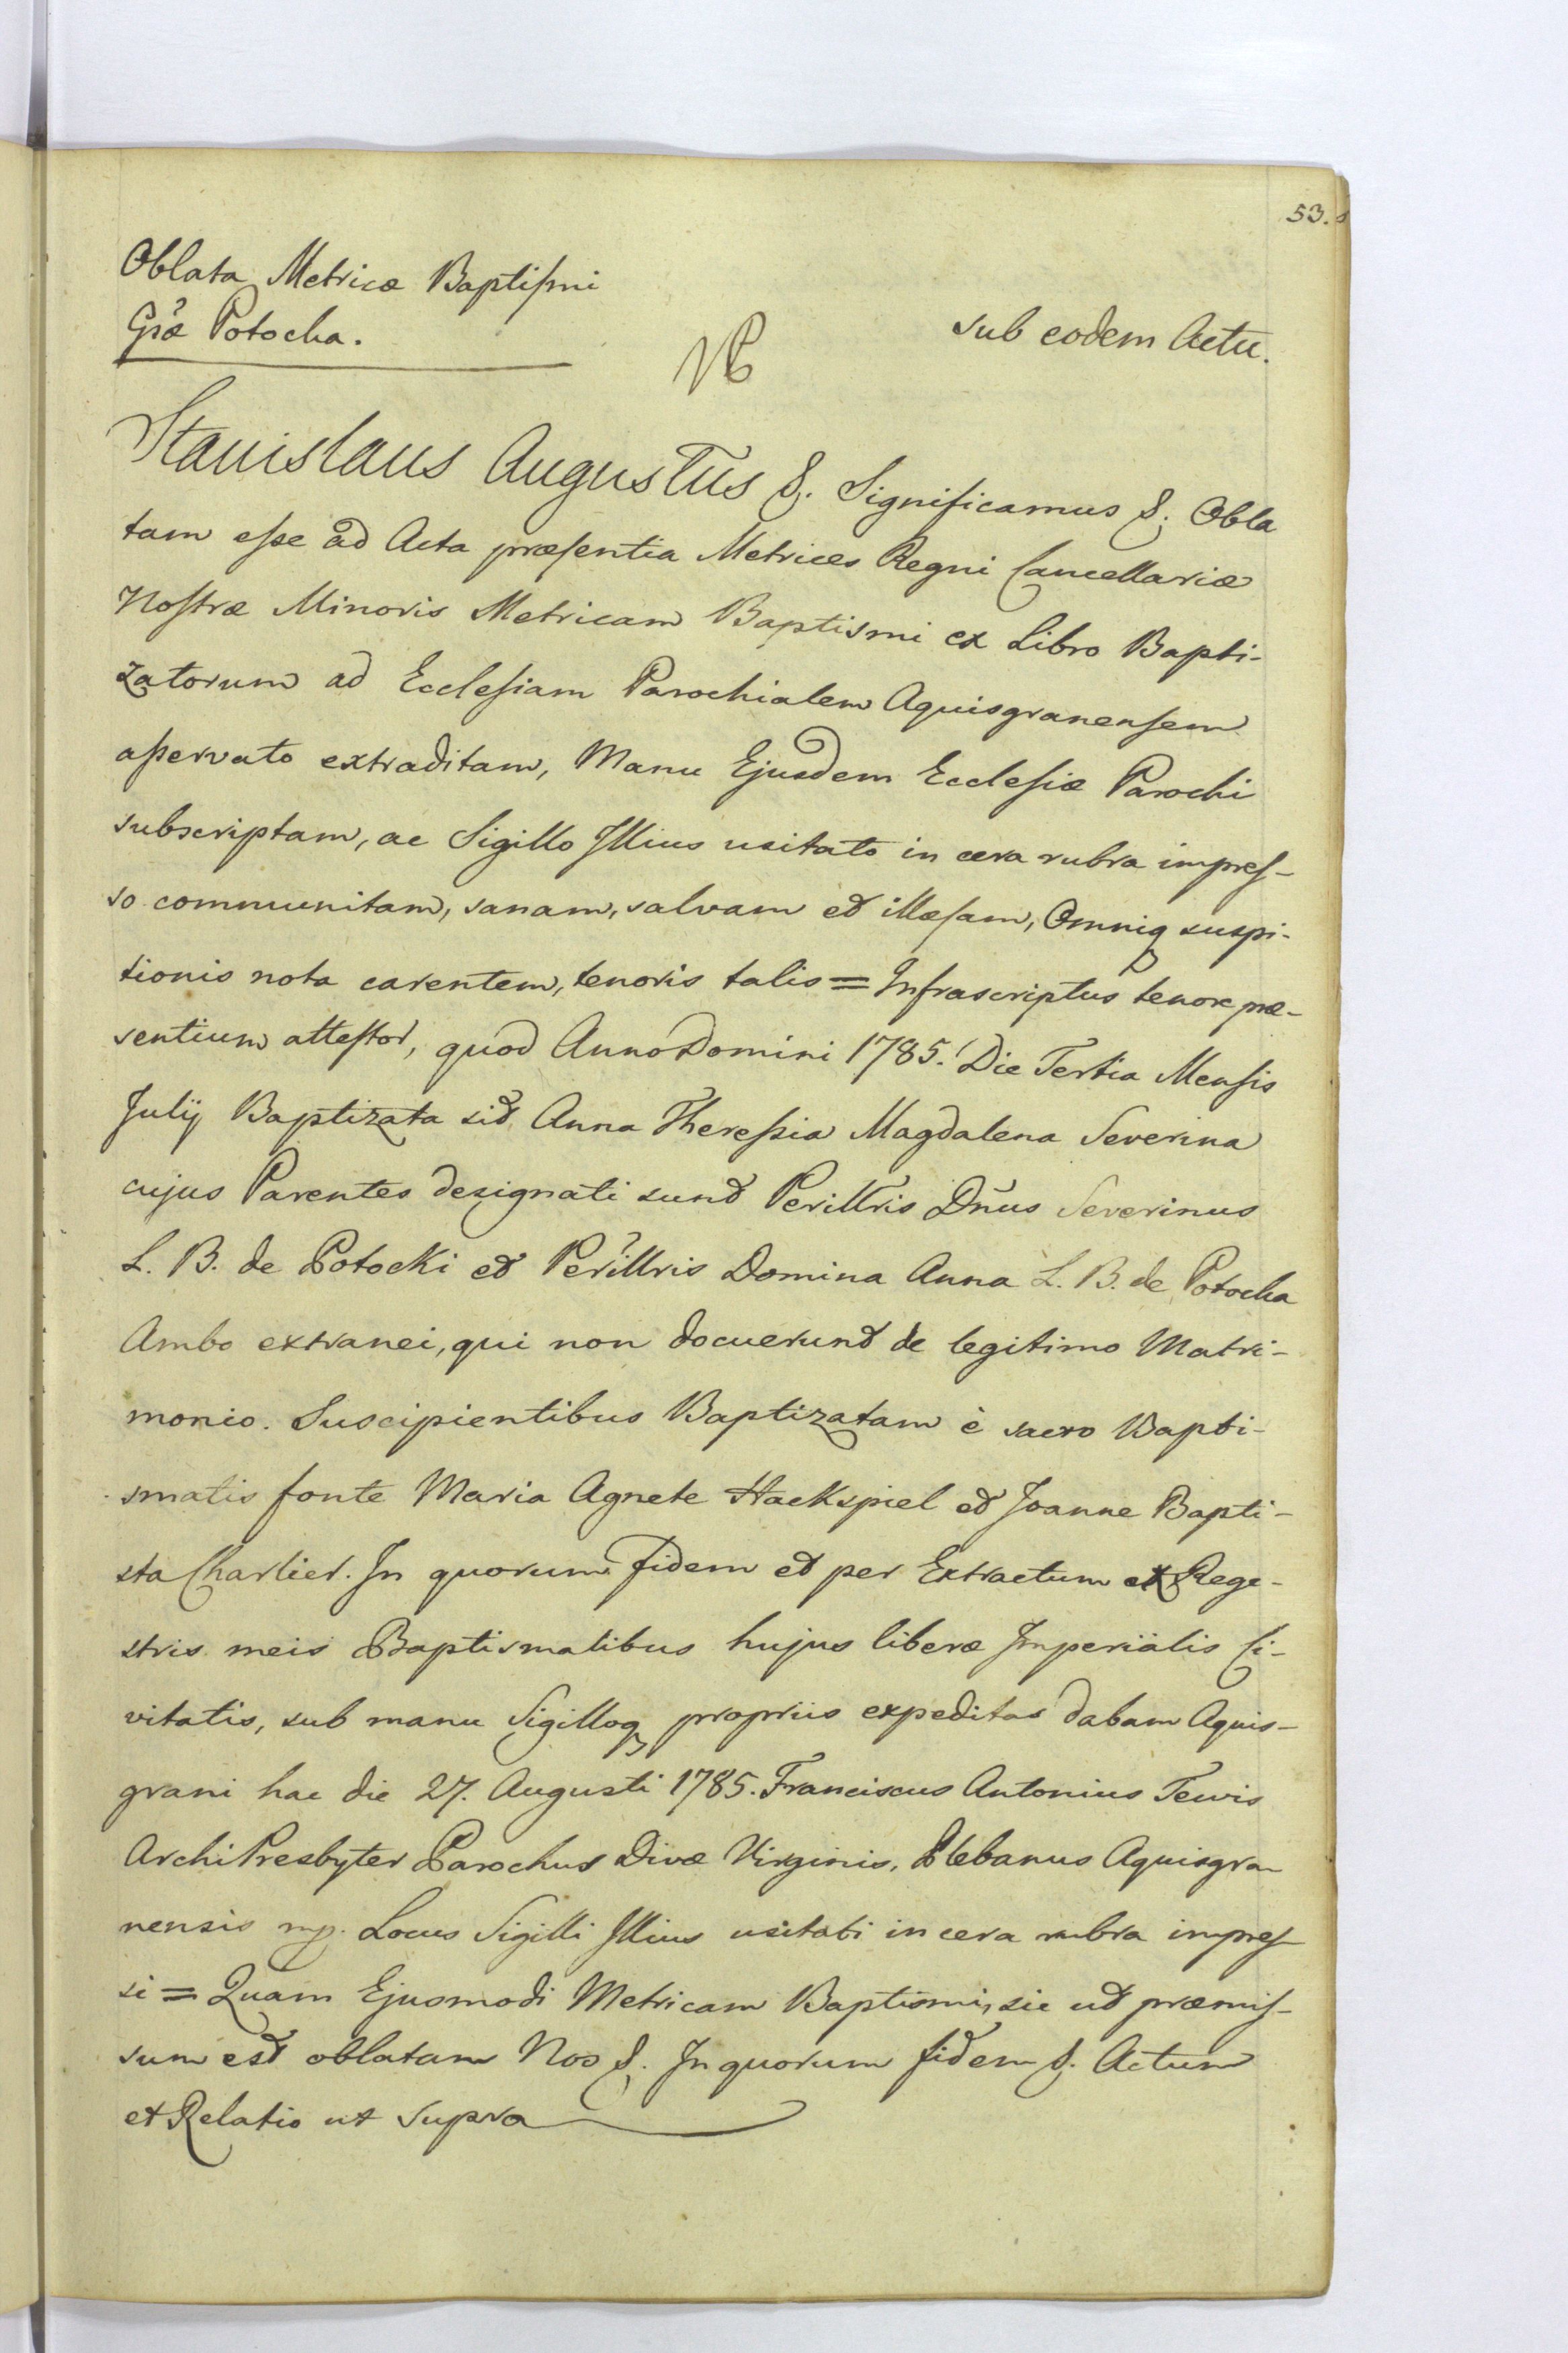 53.
Oblata Metricæ Baptiſmi
Gsæ Potocka.
sub eodem Actu.
Stanislaus Augustus &. Significamus &. Obla
tam eſse ad Acta præſentia Metrices Regni Cancellariæ
Noſtræ Minoris Metricam Baptismi ex Libro Bapti-
zatorum ad Eccleſiam Parochialem Aquisgranenſem
aſservato extraditam, Manu Ejusdem Eccleſiæ Parochi
subscriptam, ac Sigillo Illius usitato in cera rubra impreſ-
so communitam, sanam, salvam et illæſam, Omniq suspi-
tionis nota carentem, tenoris talis = Infrascriptus tenore præ-
sentium atteſtor, quod Anno Domini 1785. Die Tertia Menſis
Julij Baptizata sit Anna Thereſsia Magdalena Severina
cujus Parentes designati sunt Perillris Dn̄us Severinus
L. B. de Potocki et Perillris Domina Anna L. B. de Potocka
Ambo extranei, qui non docuerunt de legitimo Matri-
monio. Suscipientibus Baptizatam è sacro Bapti-
smatis fonte Maria Agnete Hackspiel et Joanne Bapti-
sta Charlier. In quorum fidem et per Extractum ex Rege-
stris meis Baptismatibus hujus liberæ Imperialis Ci-
vitatis, sub manu Sigilloq propriis expeditas dabam Aquis-
grani hac die 27. Augusti 1785. Franciscus Antonius Tewis
ArchiPresbyter Parochus Divæ Virginis, Plebanus Aquisgra
nensis mp. Locus Sigilli Illius usitati in cera rubra impreſ
si = Quam Ejusmodi Metricam Baptismi, sic ut præmiſ-
sum est oblatam Nos &. In quorum fidem &. Actum
et Relatio ut supra